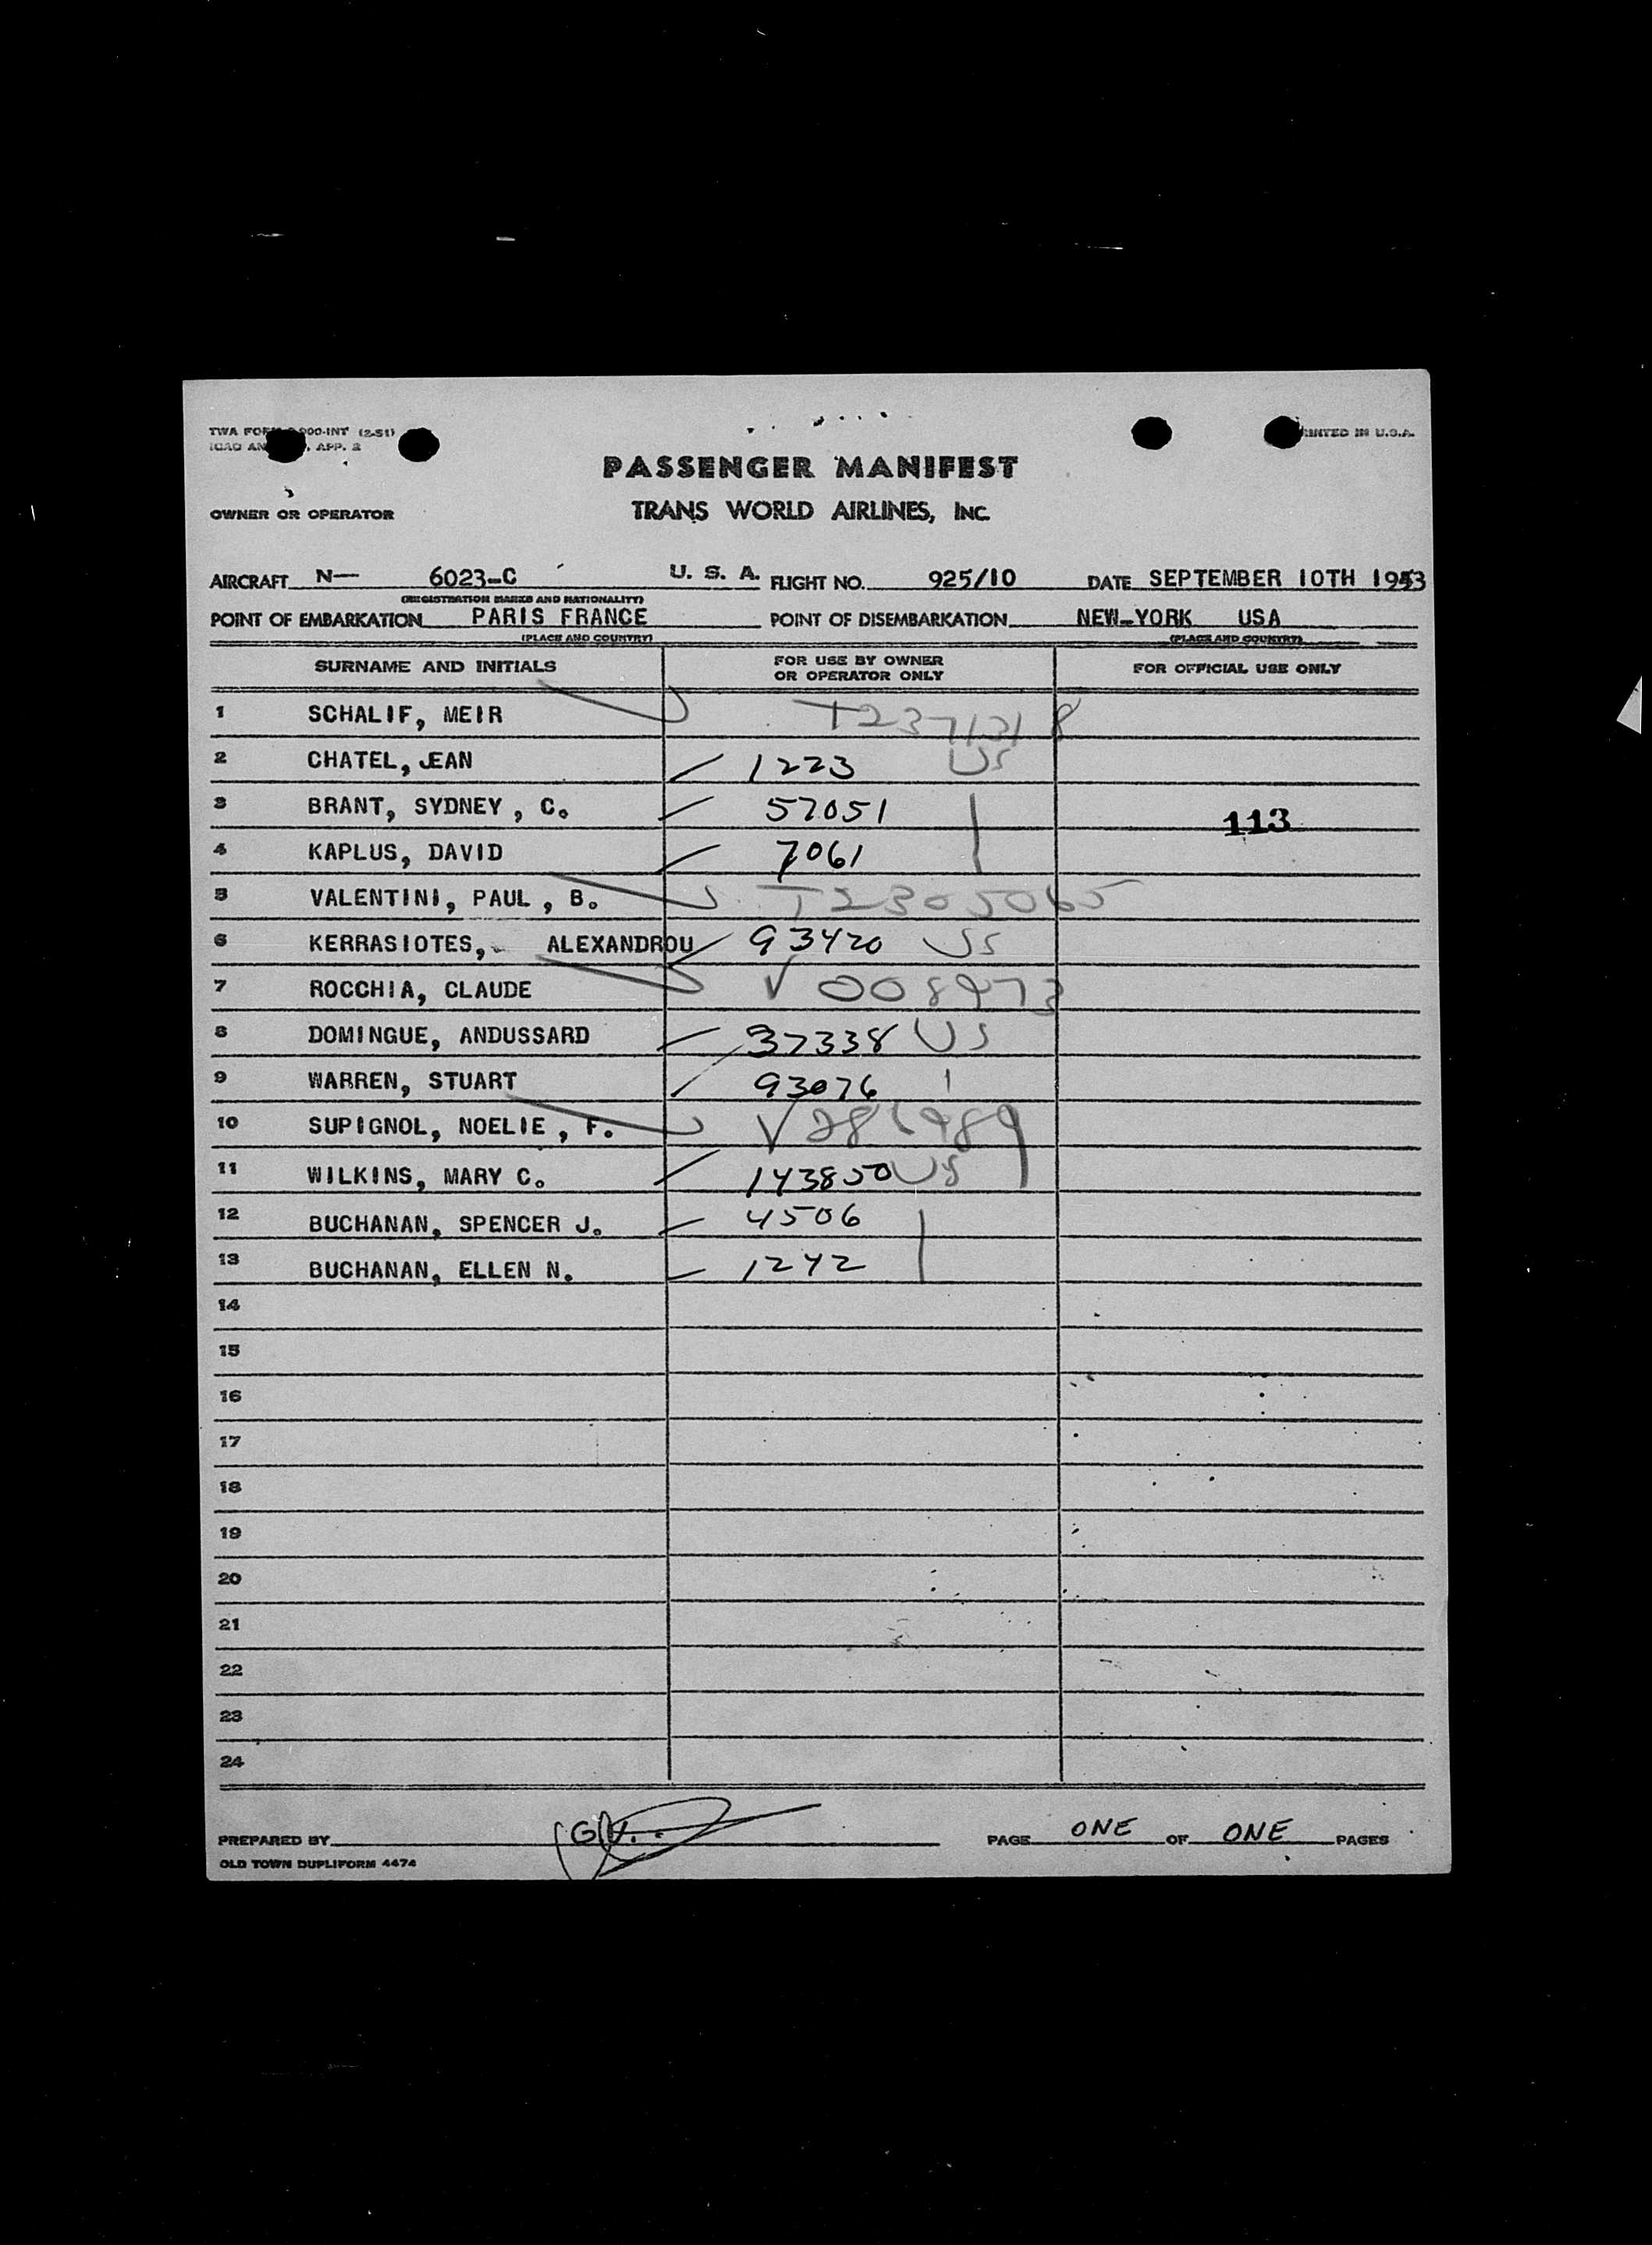 TWA FORM 000-INT (2-51)
ICAO AN , APP. 2
PRINTED IN U.S.A.
PASSENGER MANIFEST
OWNER OR OPERATOR TRANS WORLD AIRLINES, INC.
AIRCRAFT N— 6023-C U. S. A. FLIGHT NO. 925/10 DATE SEPTEMBER 10TH 1953
(REGISTRATION MARKS AND NATIONALITY)
POINT OF EMBARKATION PARIS FRANCE POINT OF DISEMBARKATION NEW-YORK USA
(PLACE AND COUNTRY) (PLACE AND COUNTRY)
SURNAME AND INITIALS FOR USE BY OWNER OR OPERATOR ONLY FOR OFFICIAL USE ONLY
1 SCHALIF, MEIR T2371318
2 CHATEL, JEAN 1223 US
3 BRANT, SYDNEY , C. 57051 113
4 KAPLUS, DAVID 7061
5 VALENTINI, PAUL , B. T2305065
6 KERRASIOTES, ALEXANDROU 93420 US
7 ROCCHIA, CLAUDE V 008973
8 DOMINGUE, ANDUSSARD 37338 US
9 WARREN, STUART 93076
10 SUPIGNOL, NOELIE , F.
11 WILKINS, MARY C. 143850 US
12 BUCHANAN, SPENCER J. 4506
13 BUCHANAN, ELLEN N. 1242
14
15
16
17
18
19
20
21
22
23
24
PREPARED BY PAGE ONE OF ONE PAGES
OLD TOWN DUPLIFORM 4474